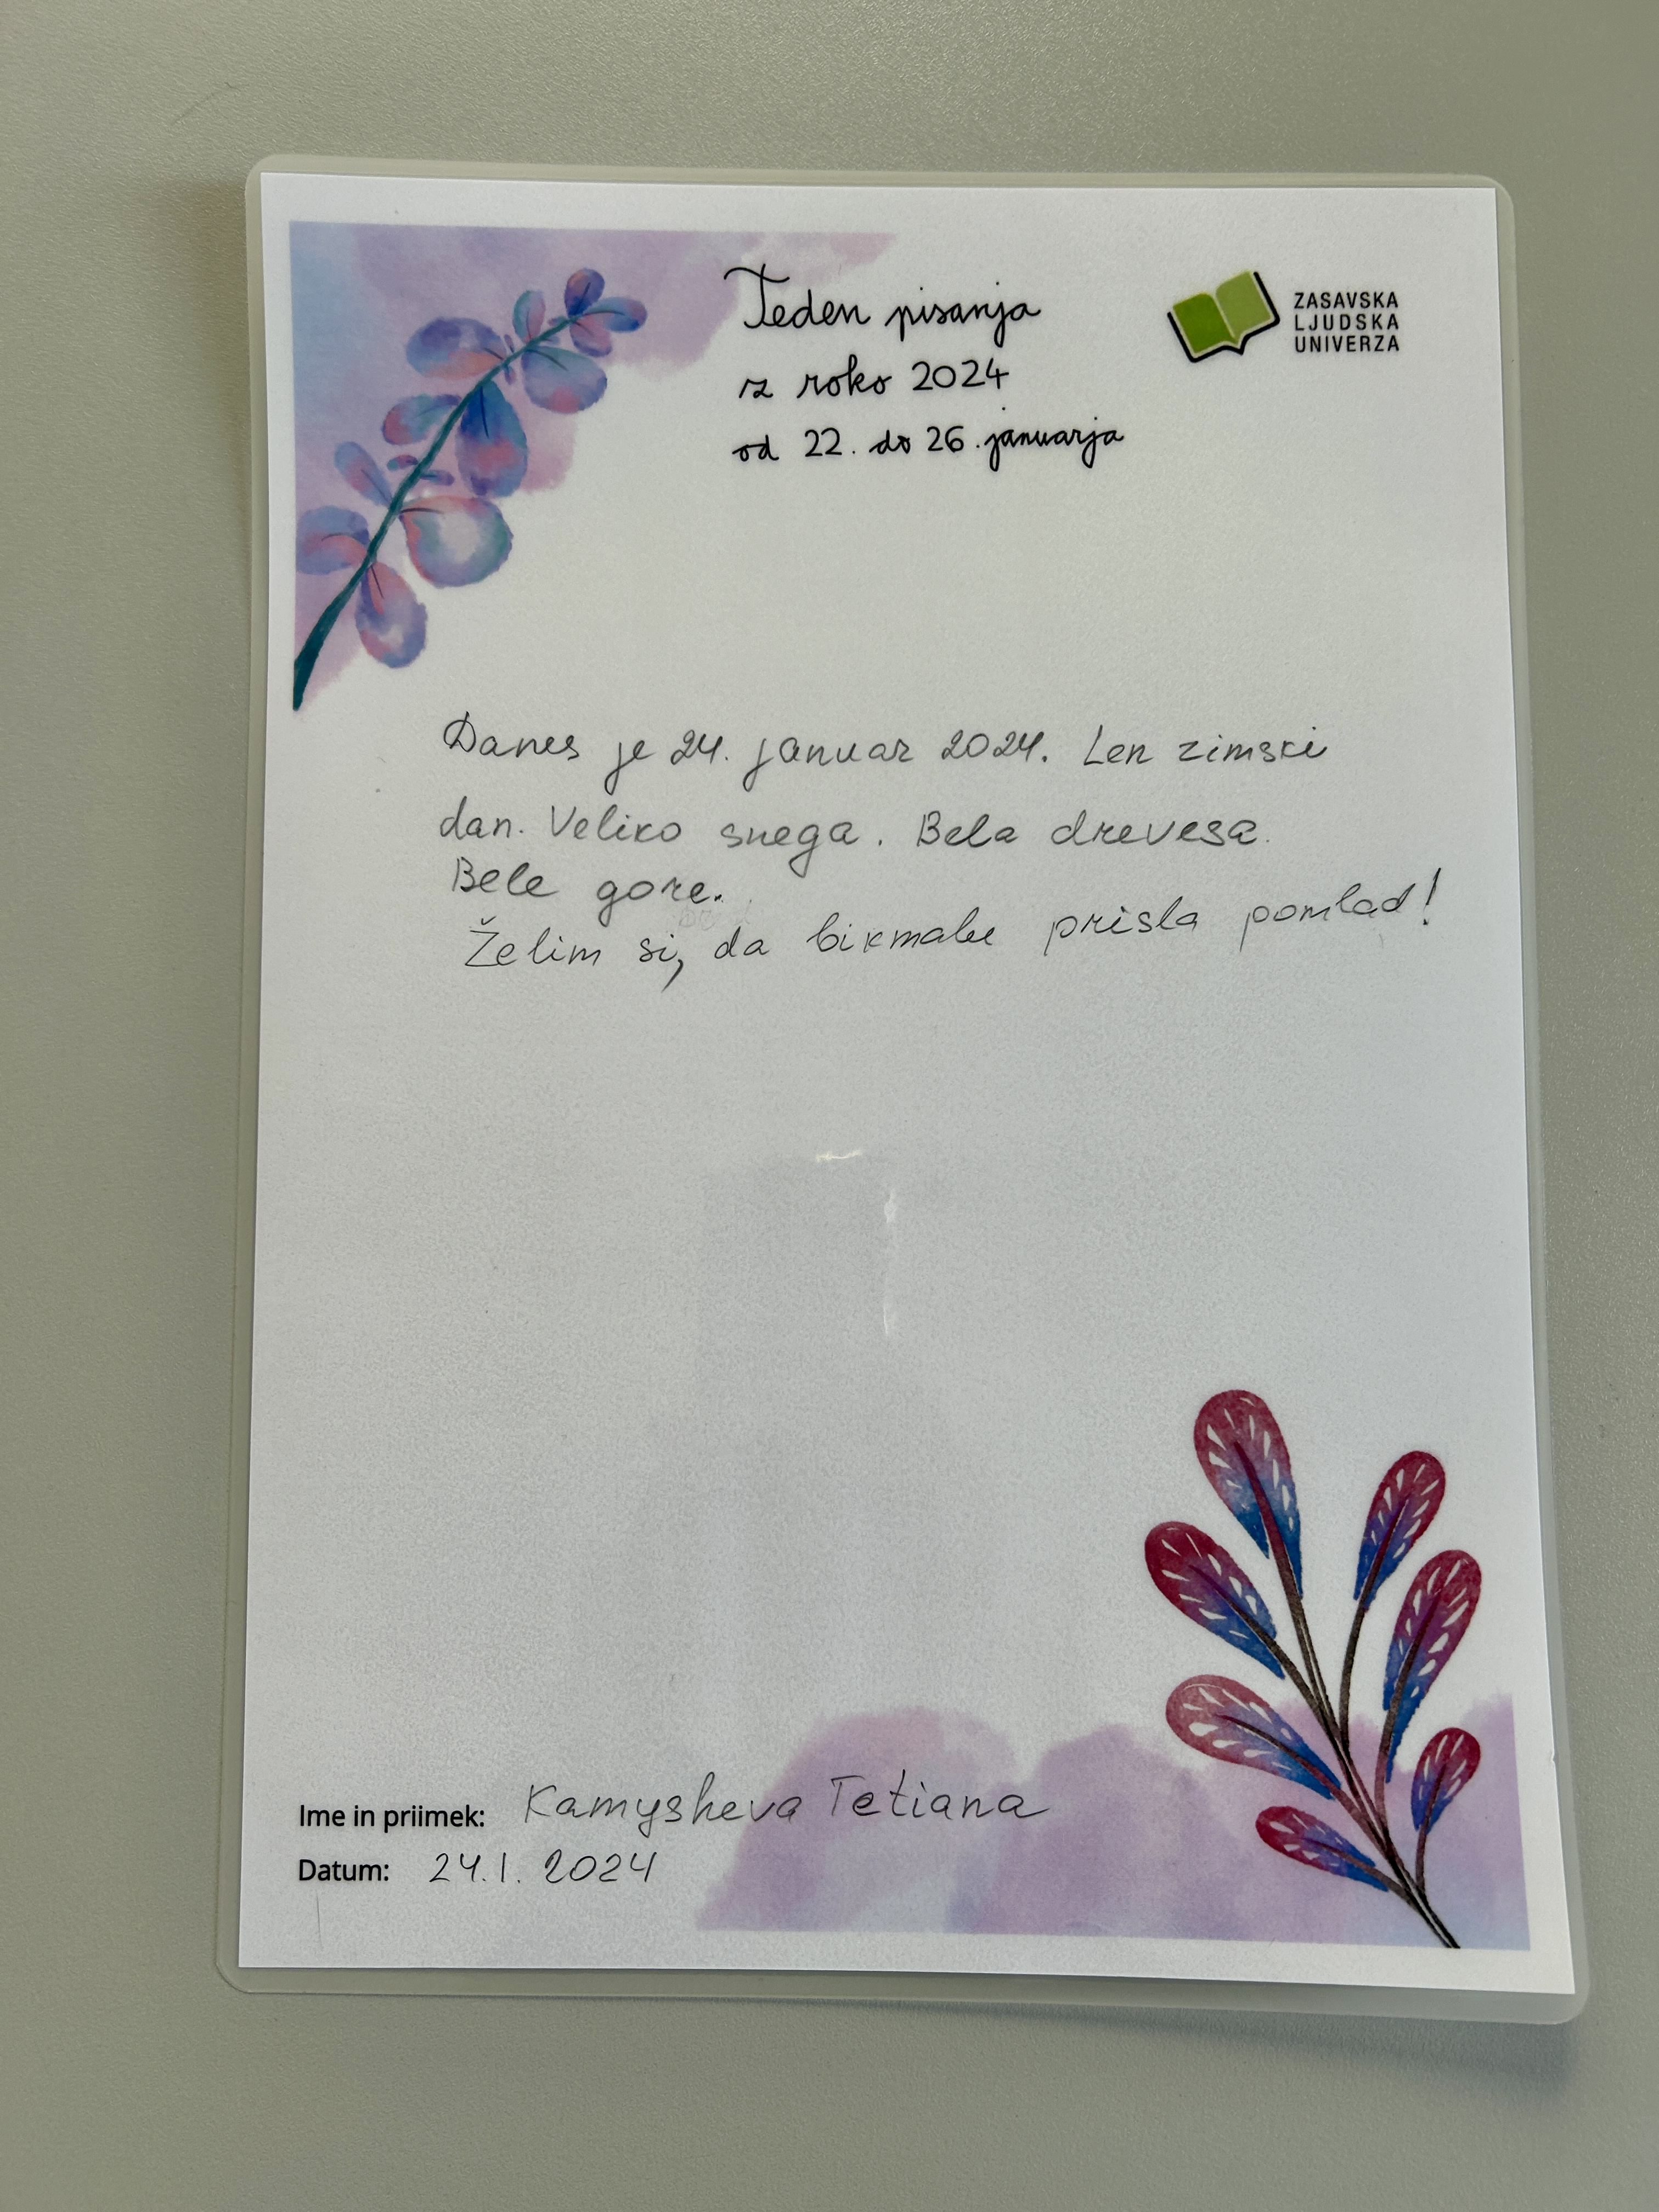 Teden pisanja
z roko 2024
od 22. do 26. januarja
ZASAVSKA
LJUDSKA
UNIVERZA
Danes je 24. januar 2024. Len zimski
dan. Veliko snega. Bela drevesa.
Bele gore.
Želim si, da bi kmalu prisla pomlad!
Ime in priimek: Kamysheva Tetiana
Datum: 24.1. 2024